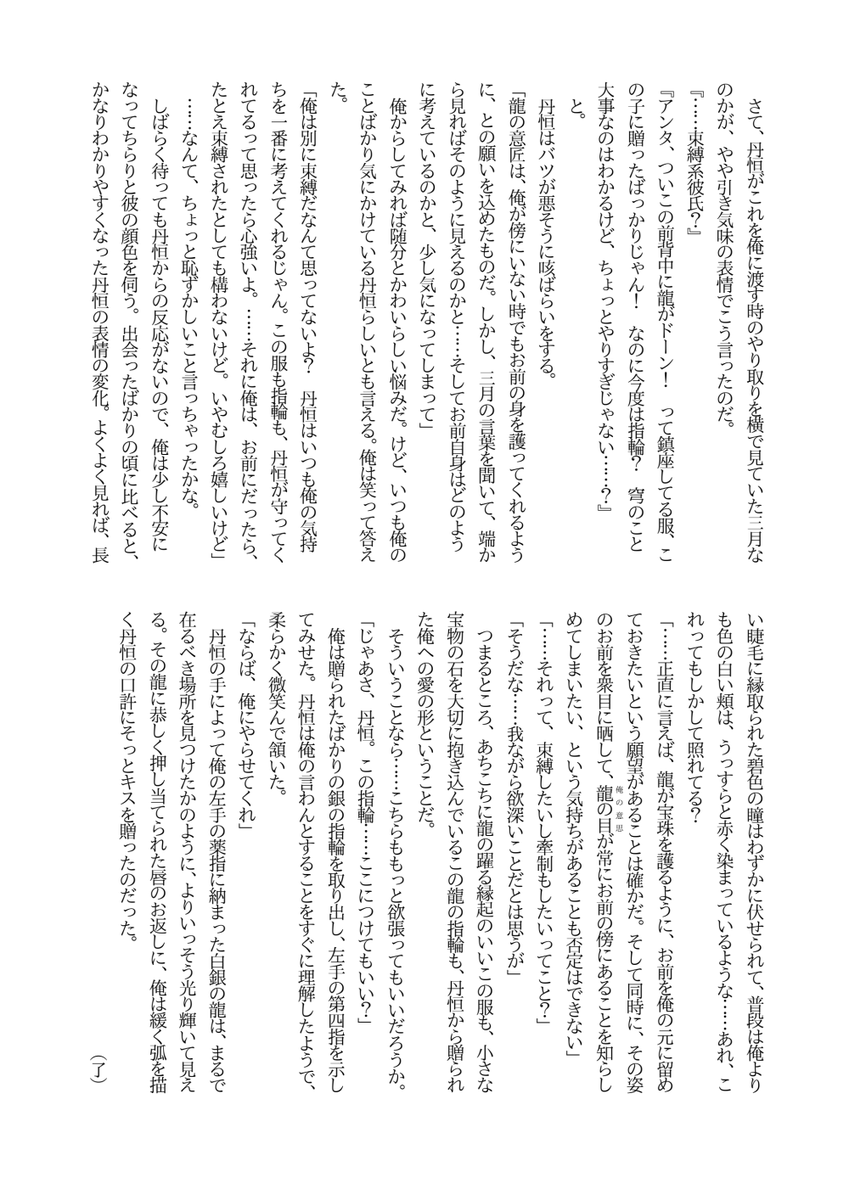 さて、丹恒がこれを俺に渡す時のやり取りを横で見ていた三月な
のかが、やや引き気味の表情でこう言ったのだ。
『……束縛系彼氏？』
『アンタ、ついこの前背中に龍がドーン！　って鎮座してる服、こ
の子に贈ったばっかりじゃん！　なのに今度は指輪？　穹のこと
大事なのはわかるけど、ちょっとやりすぎじゃない……？』
と。
丹恒はバツが悪そうに咳ばらいをする。
「龍の意匠は、俺が傍にいない時でもお前の身を護ってくれるよう
に、との願いを込めたものだ。しかし、三月の言葉を聞いて、端か
ら見ればそのように見えるのかと……そしてお前自身はどのよう
に考えているのかと、少し気になってしまって」
俺からしてみれば随分とかわいらしい悩みだ。けど、いつも俺の
ことばかり気にかけている丹恒らしいとも言える。俺は笑って答え
た。
「俺は別に束縛だなんて思ってないよ？　丹恒はいつも俺の気持
ちを一番に考えてくれるじゃん。この服も指輪も、丹恒が守ってく
れてるって思ったら心強いよ。……それに俺は、お前にだったら、
たとえ束縛されたとしても構わないけど。いやむしろ嬉しいけど」
……なんて、ちょっと恥ずかしいこと言っちゃったかな。
しばらく待っても丹恒からの反応がないので、俺は少し不安に
なってちらりと彼の顔色を伺う。出会ったばかりの頃に比べると、
かなりわかりやすくなった丹恒の表情の変化。よくよく見れば、長
い睫毛に縁取られた碧色の瞳はわずかに伏せられて、普段は俺より
も色の白い頬は、うっすらと赤く染まっているような……あれ、こ
れってもしかして照れてる？
「……正直に言えば、龍が宝珠を護るように、お前を俺の元に留め
ておきたいという願望があることは確かだ。そして同時に、その姿
のお前を衆目に晒して、龍の目が常にお前の傍にあることを知らし
俺の意思
めてしまいたい、という気持ちがあることも否定はできない」
「……それって、束縛したいし牽制もしたいってこと？」
「そうだな……我ながら欲深いことだとは思うが」
つまるところ、あちこちに龍の躍る縁起のいいこの服も、小さな
宝物の石を大切に抱き込んでいるこの龍の指輪も、丹恒から贈られ
た俺への愛の形ということだ。
そういうことなら……こちらももっと欲張ってもいいだろうか。
「じゃあさ、丹恒。この指輪……ここにつけてもいい？」
俺は贈られたばかりの銀の指輪を取り出し、左手の第四指を示し
てみせた。丹恒は俺の言わんとすることをすぐに理解したようで、
柔らかく微笑んで頷いた。
「ならば、俺にやらせてくれ」
丹恒の手によって俺の左手の薬指に納まった白銀の龍は、まるで
在るべき場所を見つけたかのように、よりいっそう光り輝いて見え
る。その龍に恭しく押し当てられた唇のお返しに、俺は緩く弧を描
く丹恒の口許にそっとキスを贈ったのだった。
（了）